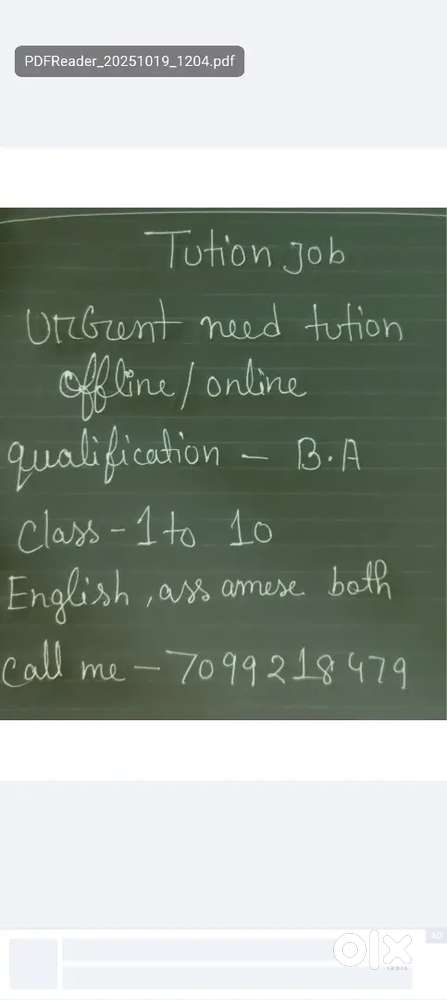 PDFReader_20251019_1204.pdf
Tution Job
Urgent need tution
offline/online
qualification - B.A
Class - 1 to 10
English, assamese both
Call me - 7099218479
AD
olx
INDIA